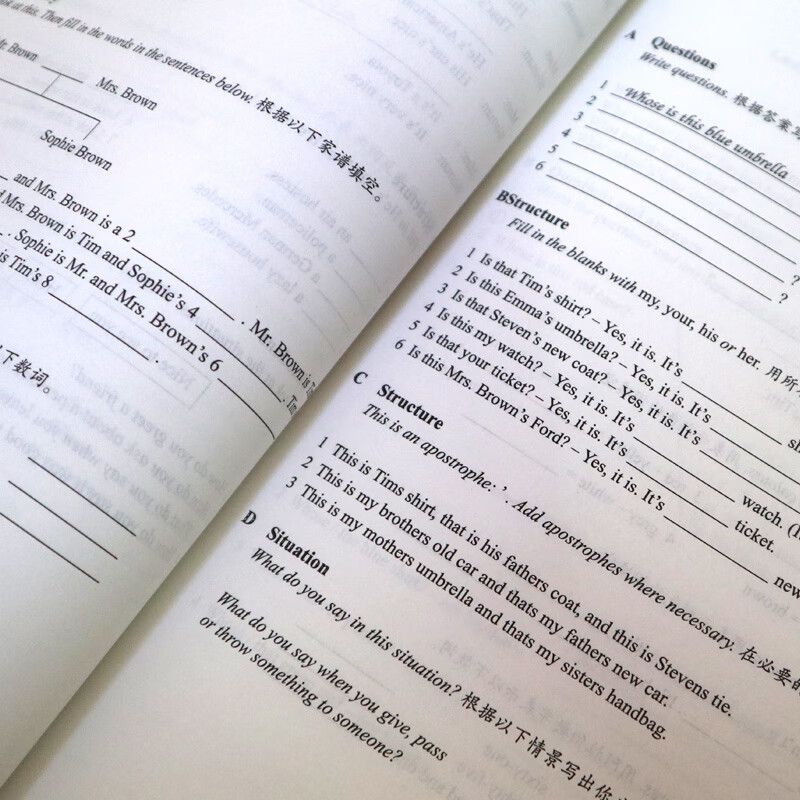 at this. Then fill in the words in the sentences below. 根据以下家谱填空。
Mr. Brown ____ Mrs. Brown
Sophie Brown
and Mrs. Brown is a 2 ____. Mr. Brown is
Mrs. Brown is Tim and Sophie's 4 ____. Tim
. Sophie is Mr. and Mrs. Brown's 6 ____
is Tim's 8 ____
下数词。
A Questions
Write questions. 根据答案
1 Whose is this blue umbrella
2
3
4
5 ?
6 ?
BStructure
Fill in the blanks with my, your, his or her. 用所
1 Is that Tim's shirt? – Yes, it is. It's ____ sh
2 Is this Emma's umbrella? – Yes, it is. It's ____
3 Is that Steven's new coat? – Yes, it is. It's ____
4 Is this my watch? – Yes, it is. It's ____ watch. (
5 Is that your ticket? – Yes, it is. It's ____ ticket.
6 Is this Mrs. Brown's Ford? – Yes, it is. It's ____ new
C Structure
This is an apostrophe: ’. Add apostrophes where necessary. 在必要的
1 This is Tims shirt, that is his fathers coat, and this is Stevens tie.
2 This is my brothers old car and thats my fathers new car.
3 This is my mothers umbrella and thats my sisters handbag.
D Situation
What do you say in this situation? 根据以下情景写出你
What do you say when you give, pass
or throw something to someone?